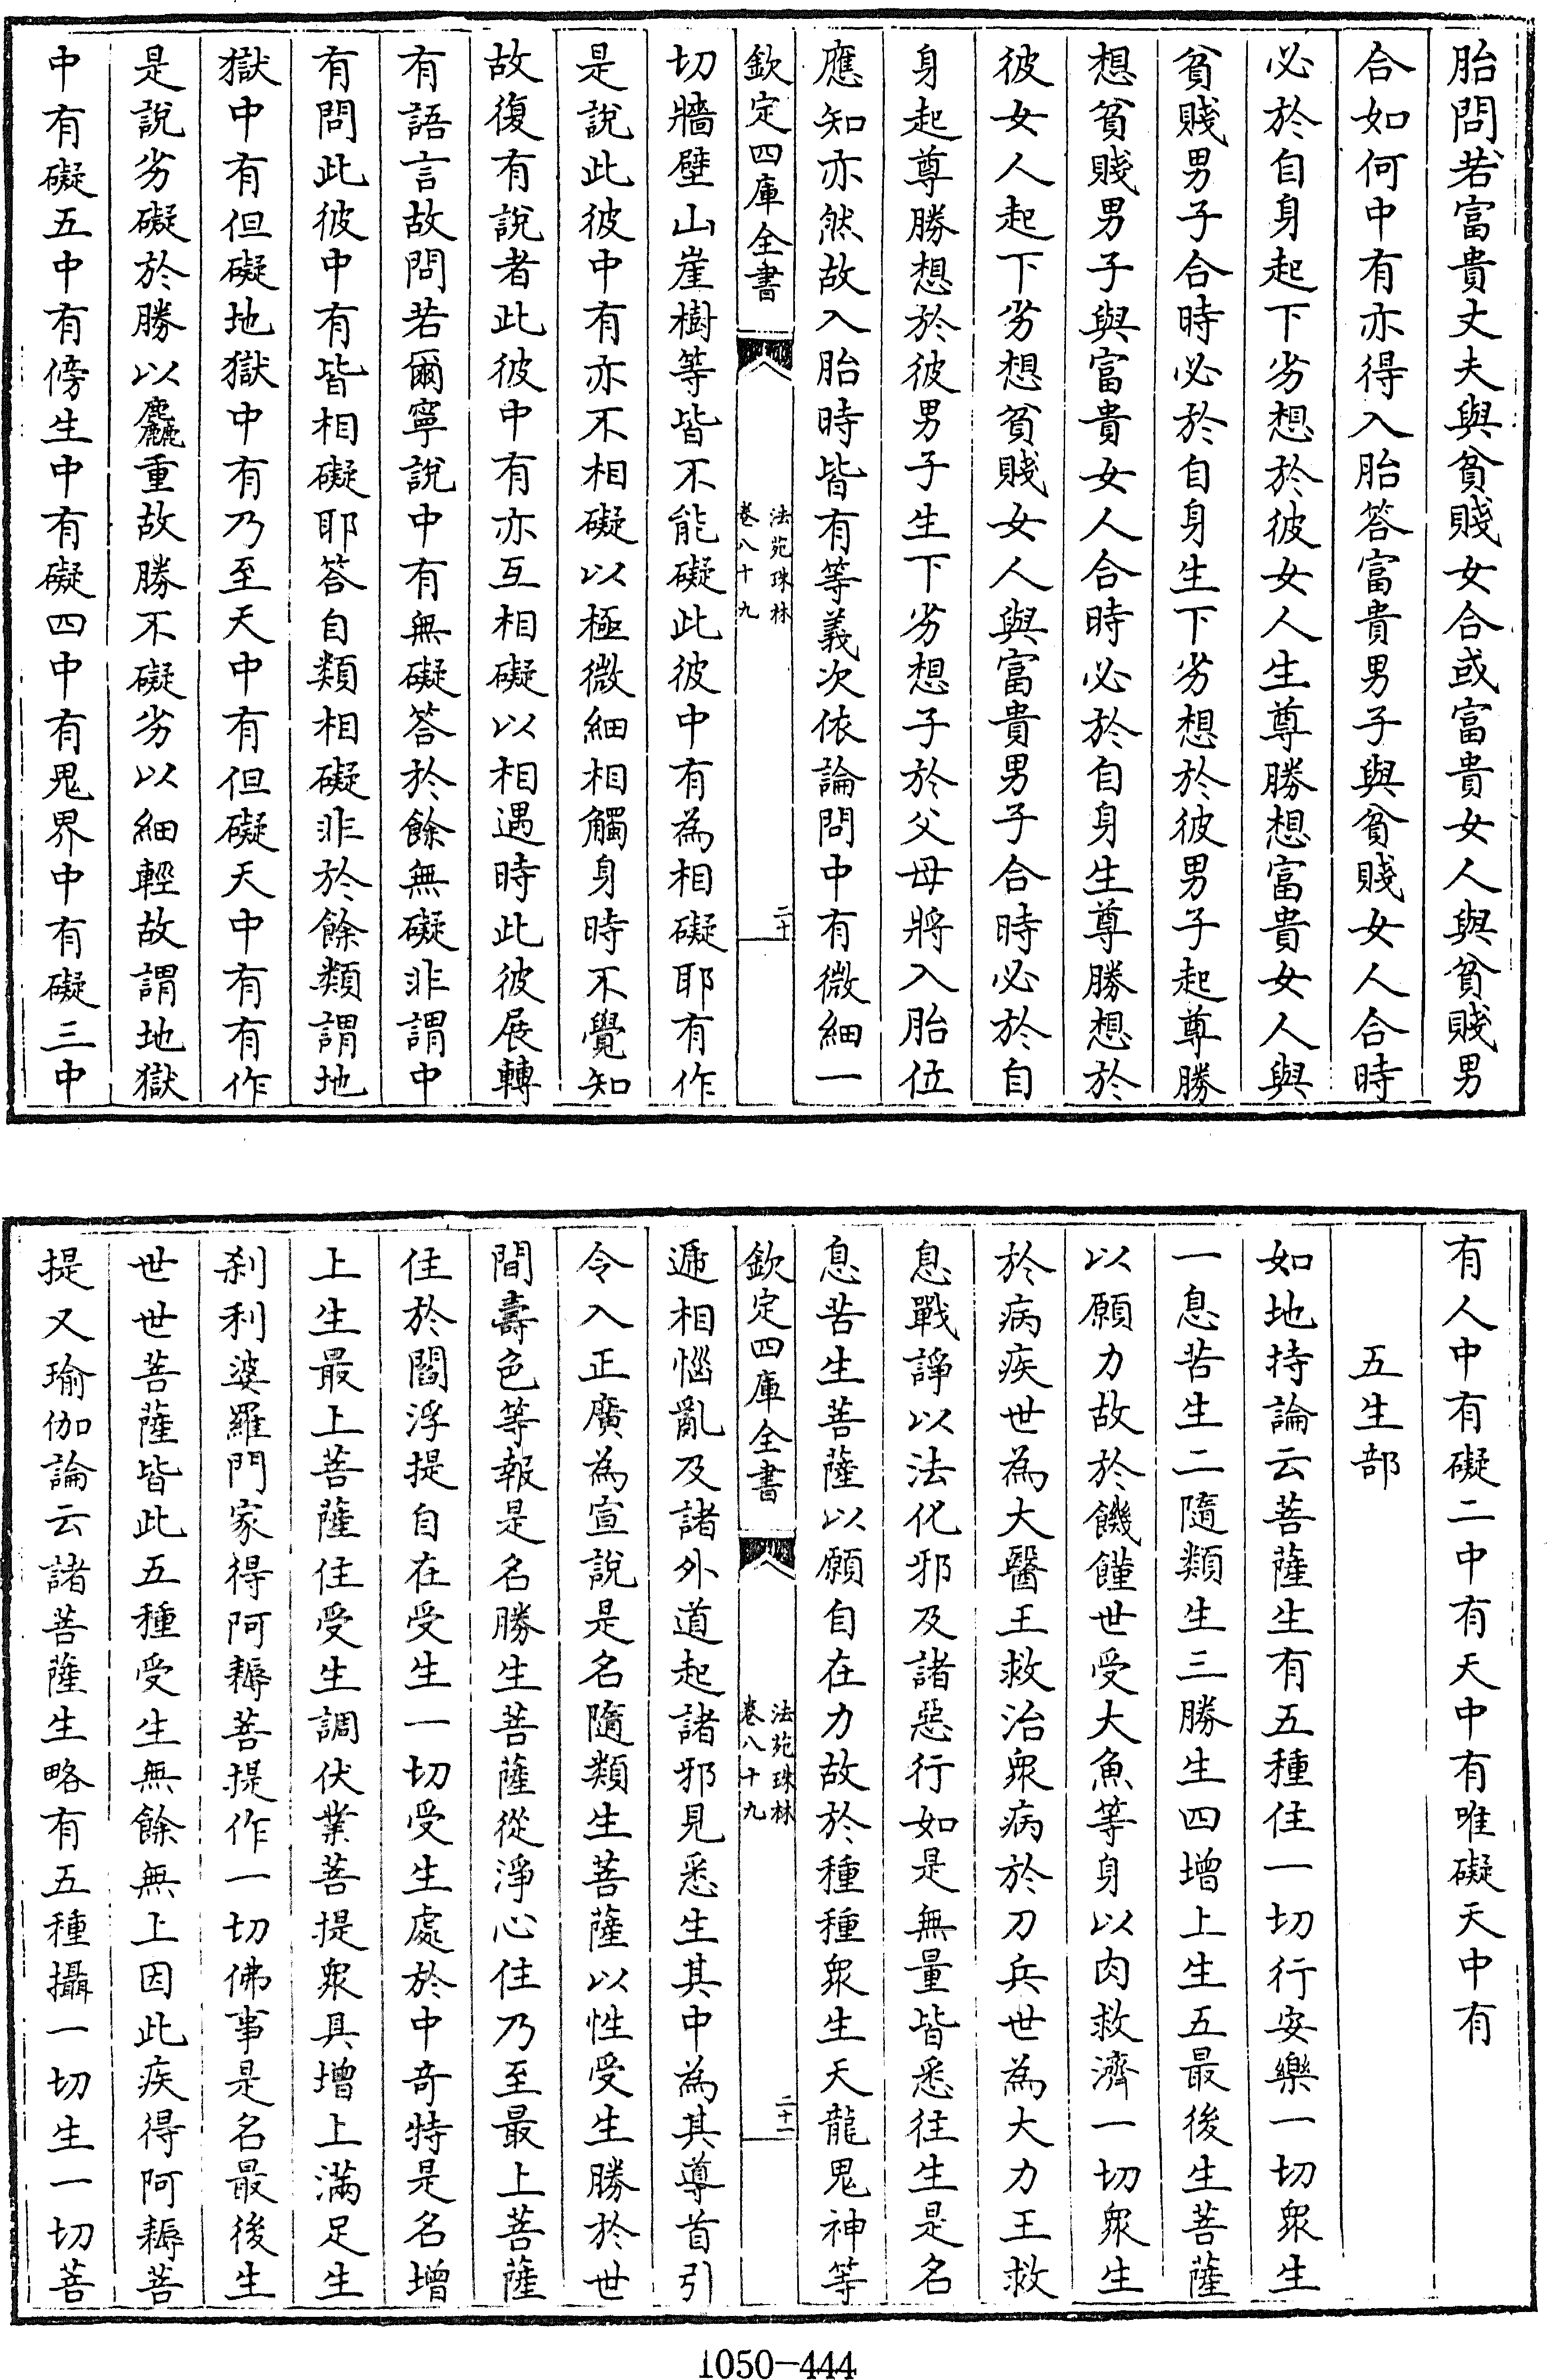 胎問若富貴丈夫與貧賤女合或富貴女人與貧賤男
合如何中有亦得入胎答富貴男子與貧賤女人合時
必於自身起下劣想於彼女人生尊勝想富貴女人與
貧賤男子合時必於自身生下劣想於彼男子起尊勝
想貧賤男子與富貴女人合時必於自身生尊勝想於
彼女人起下劣想貧賤女人與富貴男子合時必於自
身起尊勝想於彼男子生下劣想子於父母將入胎位
應知亦然故入胎時皆有等義次依論問中有微細一
欽定四庫全書
法苑珠林
卷八十九
二十
切牆壁山崖樹等皆不能礙此彼中有為相礙耶有作
是說此彼中有亦不相礙以極微細相觸身時不覺知
故復有說者此彼中有亦互相礙以相遇時此彼展轉
有語言故問若爾寧說中有無礙答於餘無礙非謂中
有問此彼中有皆相礙耶答自類相礙非於餘類謂地
獄中有但礙地獄中有乃至天中有但礙天中有有作
是說劣礙於勝以麤重故勝不礙劣以細輕故謂地獄
中有礙五中有傍生中有礙四中有鬼界中有礙三中
有人中有礙二中有天中有唯礙天中有
五生部
如地持論云菩薩生有五種住一切行安樂一切衆生
一息苦生二隨類生三勝生四增上生五最後生菩薩
以願力故於饑饉世受大魚等身以肉救濟一切衆生
於病疾世為大醫王救治衆病於刀兵世為大力王救
息戰諍以法化邪及諸惡行如是無量皆悉往生是名
息苦生菩薩以願自在力故於種種衆生天龍鬼神等
欽定四庫全書
法苑珠林
卷八十九
二十一
遞相惱亂及諸外道起諸邪見悉生其中為其導首引
令入正廣為宣說是名隨類生菩薩以性受生勝於世
間壽色等報是名勝生菩薩從淨心住乃至最上菩薩
住於閻浮提自在受生一切受生處於中奇特是名增
上生最上菩薩住受生調伏業菩提衆具增上滿足生
刹利婆羅門家得阿耨菩提作一切佛事是名最後生
世世菩薩皆此五種受生無餘無上因此疾得阿耨菩
提又瑜伽論云諸菩薩生略有五種攝一切生一切菩
1050-444